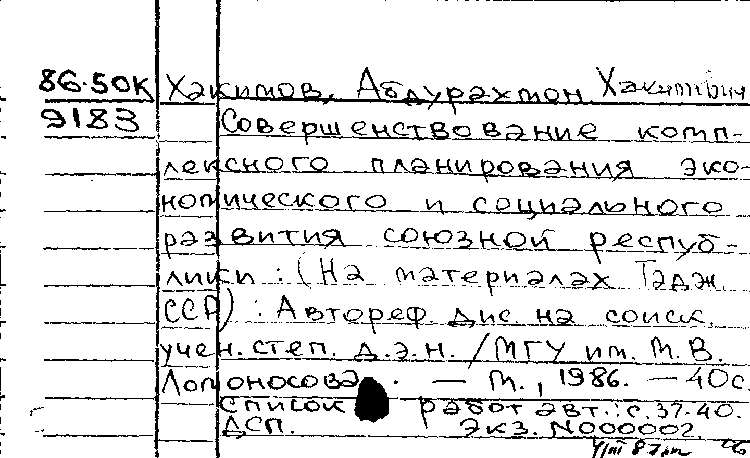 86-50К Хакимов, Абдурахмон Хакимович
9183 Совершенствование комп-
лексного планирования эко-
номического и социального
развития союзной респуб-
лики : (На материалах Тадж.
ССР) : Автореф. дис. на соиск.
учен. степ. д.э.н. / МГУ им. М.В.
Ломоносова. — М., 1986. — 40с.
Список работ авт.: с. 37-40.
ДСП. Экз. N000002.